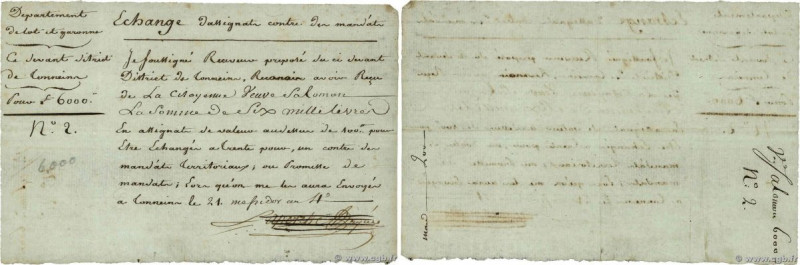 Departement
de lot et garonne
Ce devant District
de Tonneins
Pour £ 6000.
N.° 2.
6,000
Echange d'assignats contre des mandats
Je soussigné Receveur preposé du ci devant
District de Tonneins, Reconnais avoir Reçu
de La Citoyenne Veuve Salomon
La Somme de Six mille livres
En assignats de valeur au dessus de 100.# pour
Etre Echangés a trente pour, un contre des
mandats territoriaux; ou Promesse de
mandats; Lors qu'on me les aura Envoyés
a Tonneins le 21. messidor an 4.e
200
mand
V.e Salomon 6000
N.° 2.
© www.cgb.fr